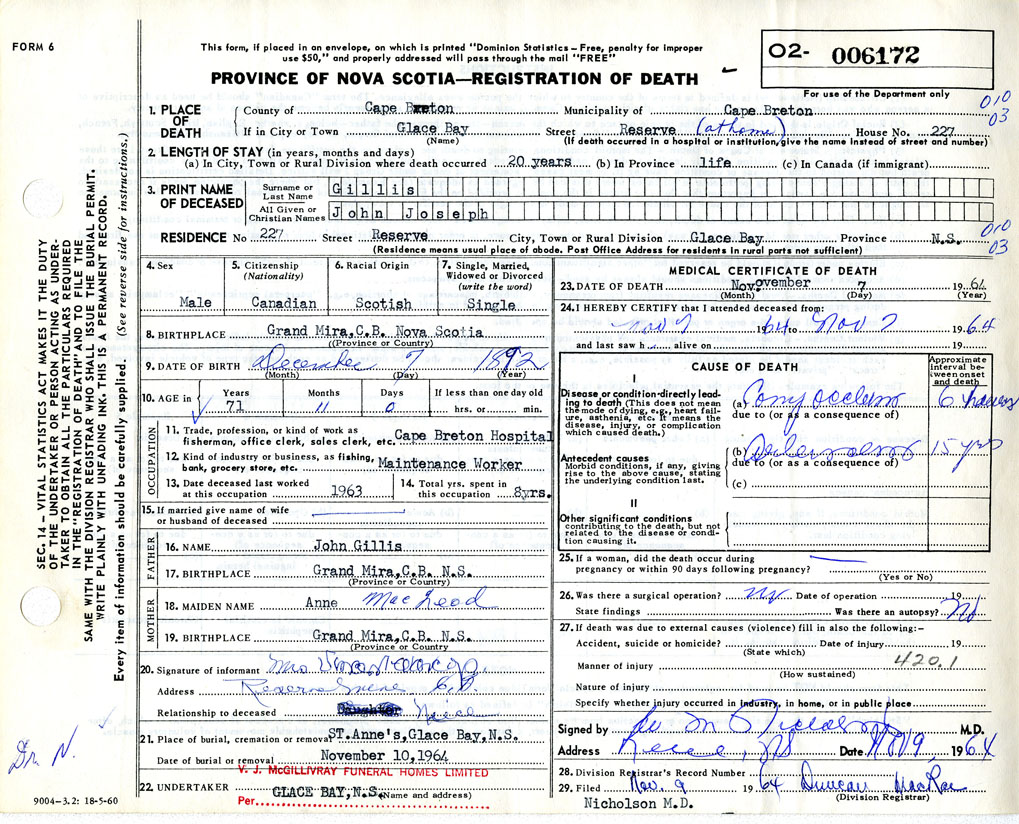 FORM 6
This form, if placed in an envelope, on which is printed "Dominion Statistics – Free, penalty for improper
use $50," and properly addressed will pass through the mail "FREE"
PROVINCE OF NOVA SCOTIA—REGISTRATION OF DEATH
02- 006172
For use of the Department only
010
03
1. PLACE OF DEATH
County of Cape Breton Municipality of Cape Breton
If in City or Town Glace Bay Street Reserve (at home) House No. 227
(Name) (If death occurred in a hospital or institution, give the name instead of street and number)
2. LENGTH OF STAY (in years, months and days)
(a) In City, Town or Rural Division where death occurred 20 years (b) In Province life (c) In Canada (if immigrant)
3. PRINT NAME OF DECEASED
Surname or Last Name Gillis
All Given or Christian Names John Joseph
010
03
RESIDENCE No 227 Street Reserve City, Town or Rural Division Glace Bay Province N.S.
(Residence means usual place of abode. Post Office Address for residents in rural parts not sufficient)
4. Sex
Male
5. Citizenship (Nationality)
Canadian
6. Racial Origin
Scotish
7. Single, Married, Widowed or Divorced (write the word)
Single
8. BIRTHPLACE Grand Mira,C.B. Nova Scotia
(Province or Country)
9. DATE OF BIRTH December 7 1892
(Month) (Day) (Year)
10. AGE in Years Months If less than one day old
71 11 0 hrs. or min.
OCCUPATION
11. Trade, profession, or kind of work as
fisherman, office clerk, sales clerk, etc. Cape Breton Hospital
12. Kind of industry or business, as fishing,
bank, grocery store, etc. Maintenance Worker
13. Date deceased last worked at this occupation 1963
14. Total yrs. spent in this occupation 8yrs.
15. If married give name of wife
or husband of deceased
FATHER
16. NAME John Gillis
17. BIRTHPLACE Grand Mira,C.B. N.S.
(Province or Country)
MOTHER
18. MAIDEN NAME Anne MacLeod
19. BIRTHPLACE Grand Mira,C.B. N.S.
(Province or Country)
20. Signature of informant Mrs
Address Reserve Mines C.B.
Relationship to deceased Niece
21. Place of burial, cremation or removal ST.Anne's,Glace Bay,N.S.
Date of burial or removal November 10,1964
V. J. McGILLIVRAY FUNERAL HOMES LIMITED
22. UNDERTAKER GLACE BAY,N.S. (Name and address)
Per.
MEDICAL CERTIFICATE OF DEATH
23. DATE OF DEATH November 7 1964
(Month) (Day) (Year)
24. I HEREBY CERTIFY that I attended deceased from:
Nov 7 1964 to Nov 7 1964
and last saw h alive on 19
CAUSE OF DEATH
Approximate interval between onset and death
I
Disease or condition directly leading to death (This does not mean the mode of dying, e.g., heart failure, asthenia, etc. It means the disease, injury, or complication which caused death.)
(a) Cony Occlusion 6 hours
due to (or as a consequence of)
Antecedent causes
Morbid conditions, if any, giving rise to the above cause, stating the underlying condition last.
(b) 15 yrs
due to (or as a consequence of)
(c)
II
Other significant conditions
contributing to the death, but not related to the disease or condition causing it.
25. If a woman, did the death occur during
pregnancy or within 90 days following pregnancy?
(Yes or No)
26. Was there a surgical operation? No Date of operation 19
State findings Was there an autopsy? No
27. If death was due to external causes (violence) fill in also the following:–
Accident, suicide or homicide? Date of injury 19
(State which)
420.1
Manner of injury
(How sustained)
Nature of injury
Specify whether injury occurred in industry, in home, or in public place
Signed by M.D.
Address Reserve, NS Date Nov 9, 1964
28. Division Registrar's Record Number
29. Filed Nov. 9 1964 Duncan MacRae
(Division Registrar)
Nicholson M.D.
SEC. 14 – VITAL STATISTICS ACT MAKES IT THE DUTY
OF THE UNDERTAKER OR PERSON ACTING AS UNDER-
TAKER TO OBTAIN ALL THE PARTICULARS REQUIRED
IN THE "REGISTRATION OF DEATH" AND TO FILE THE
SAME WITH THE DIVISION REGISTRAR WHO SHALL ISSUE THE BURIAL PERMIT.
WRITE PLAINLY WITH UNFADING INK. THIS IS A PERMANENT RECORD.
Every item of information should be carefully supplied. (See reverse side for instructions.)
Dr. N.
9004–3.2: 18-5-60